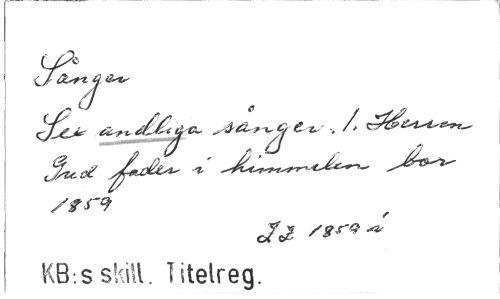 Sånger
Sex andliga sånger. 1. Herren
Gud fader i himmelen bor
1859
ZZ 1859 i
KB:s skill. Titelreg.